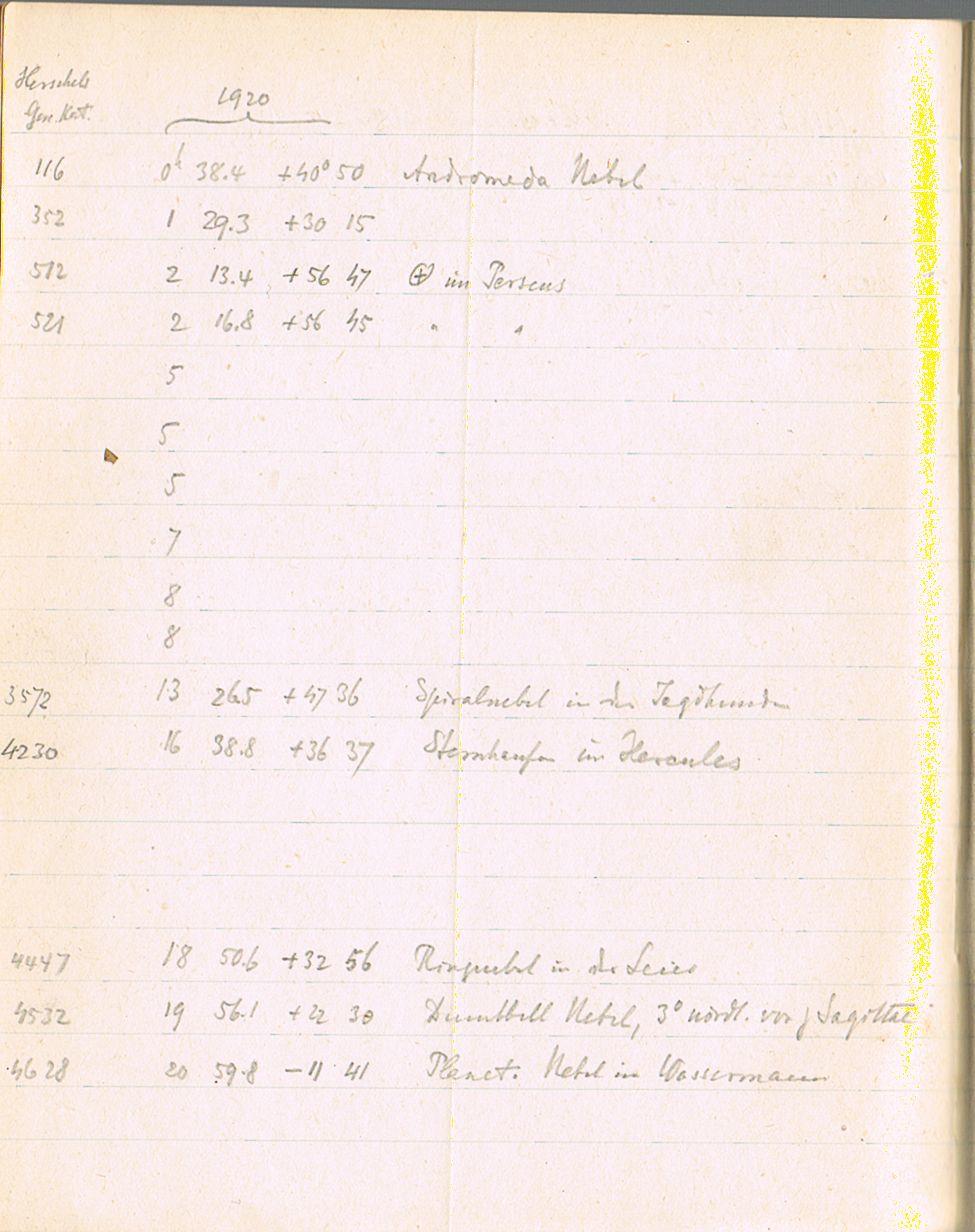 Herschels
Gen. Kat.
1920
116 0h 38.4 +40° 50 Andromeda Nebel
352 1 29.3 +30 15
512 2 13.4 +56 47 ⊕ im Perseus
521 2 16.8 +56 45 " "
5
5
5
7
8
8
3572 13 26.5 +47 36 Spiralnebel in den Jagdhunden
4230 16 38.8 +36 37 Sternhaufen im Hercules
4447 18 50.6 +32 56 Ringnebel in der Leier
4532 19 56.1 +22 30 Dumbbell Nebel, 3° nördl. von γ Sagittae
4628 20 59.8 −11 41 Planet. Nebel im Wassermann